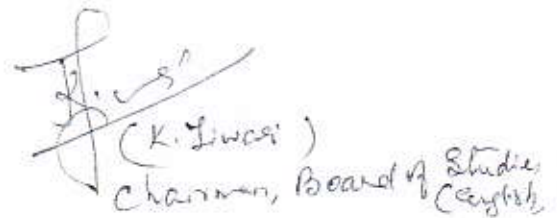 (K. Tiwari)
Chairman, Board of Studies,
(English)